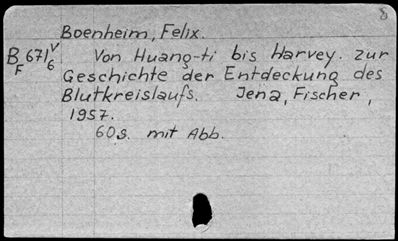 Boenheim, Felix.
B 671 V
F 6
Von Huang-ti bis Harvey. zur
Geschichte der Entdeckung des
Blutkreislaufs. Jena, Fischer,
1957.
60S. mit Abb.